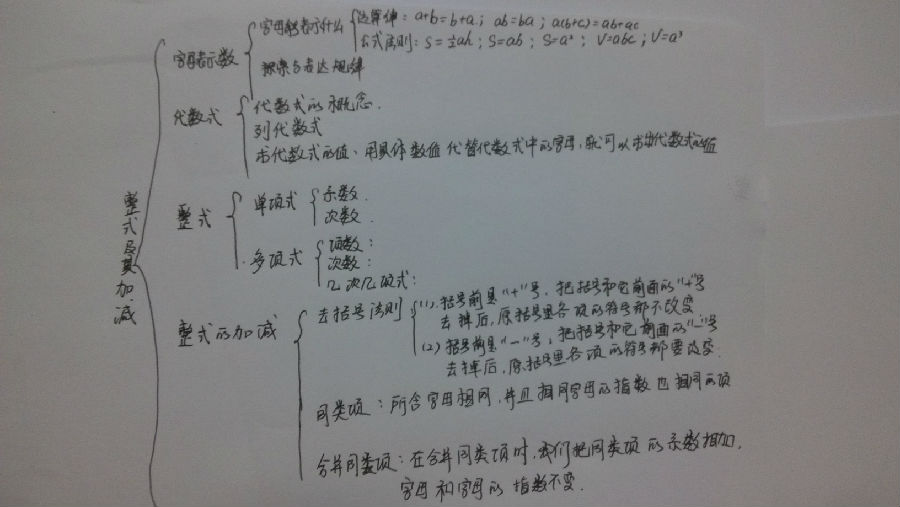 整式及其加减
字母表示数
字母能表示什么
运算律：a+b=b+a；ab=ba；a(b+c)=ab+ac
公式法则：S=½ah；S=ab；S=a²；V=abc；V=a³
探索与表达规律
代数式
代数式的概念.
列代数式
求代数式的值、用具体数值代替代数式中的字母，就可以求出代数式的值
整式
单项式
系数.
次数.
多项式
项数：
次数：
几次几项式：
整式的加减
去括号法则
(1).括号前是"+"号，把括号和它前面的"+"号
去掉后，原括号里各项的符号都不改变
(2)括号前是"-"号，把括号和它前面的"-"号
去掉后，原括号里各项的符号都要改变.
同类项：所含字母相同，并且相同字母的指数也相同的项
合并同类项：在合并同类项时，我们把同类项的系数相加，
字母和字母的指数不变.